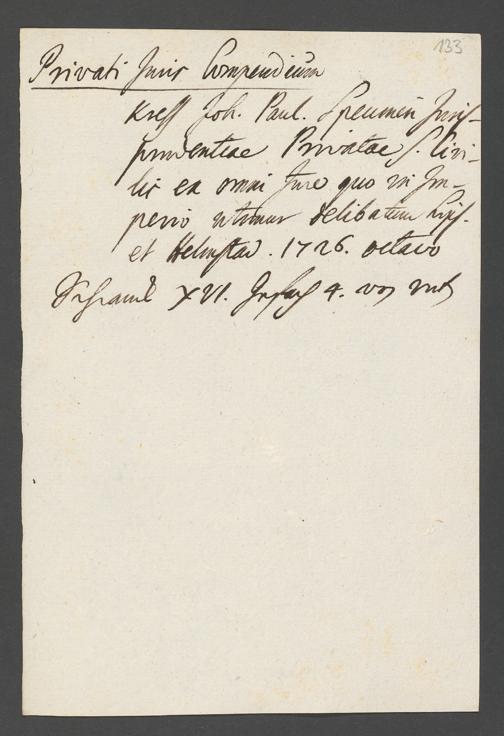 133
Privati Juris Compendium
Kress Joh. Paul. Specimen Juris-
prudentiae Privatae s. Civi-
lis ex omni Jure quo in Im-
perio utimur delibatum Lips.
et Helmstad. 1726. octavo
Schrank XVI. 4. von